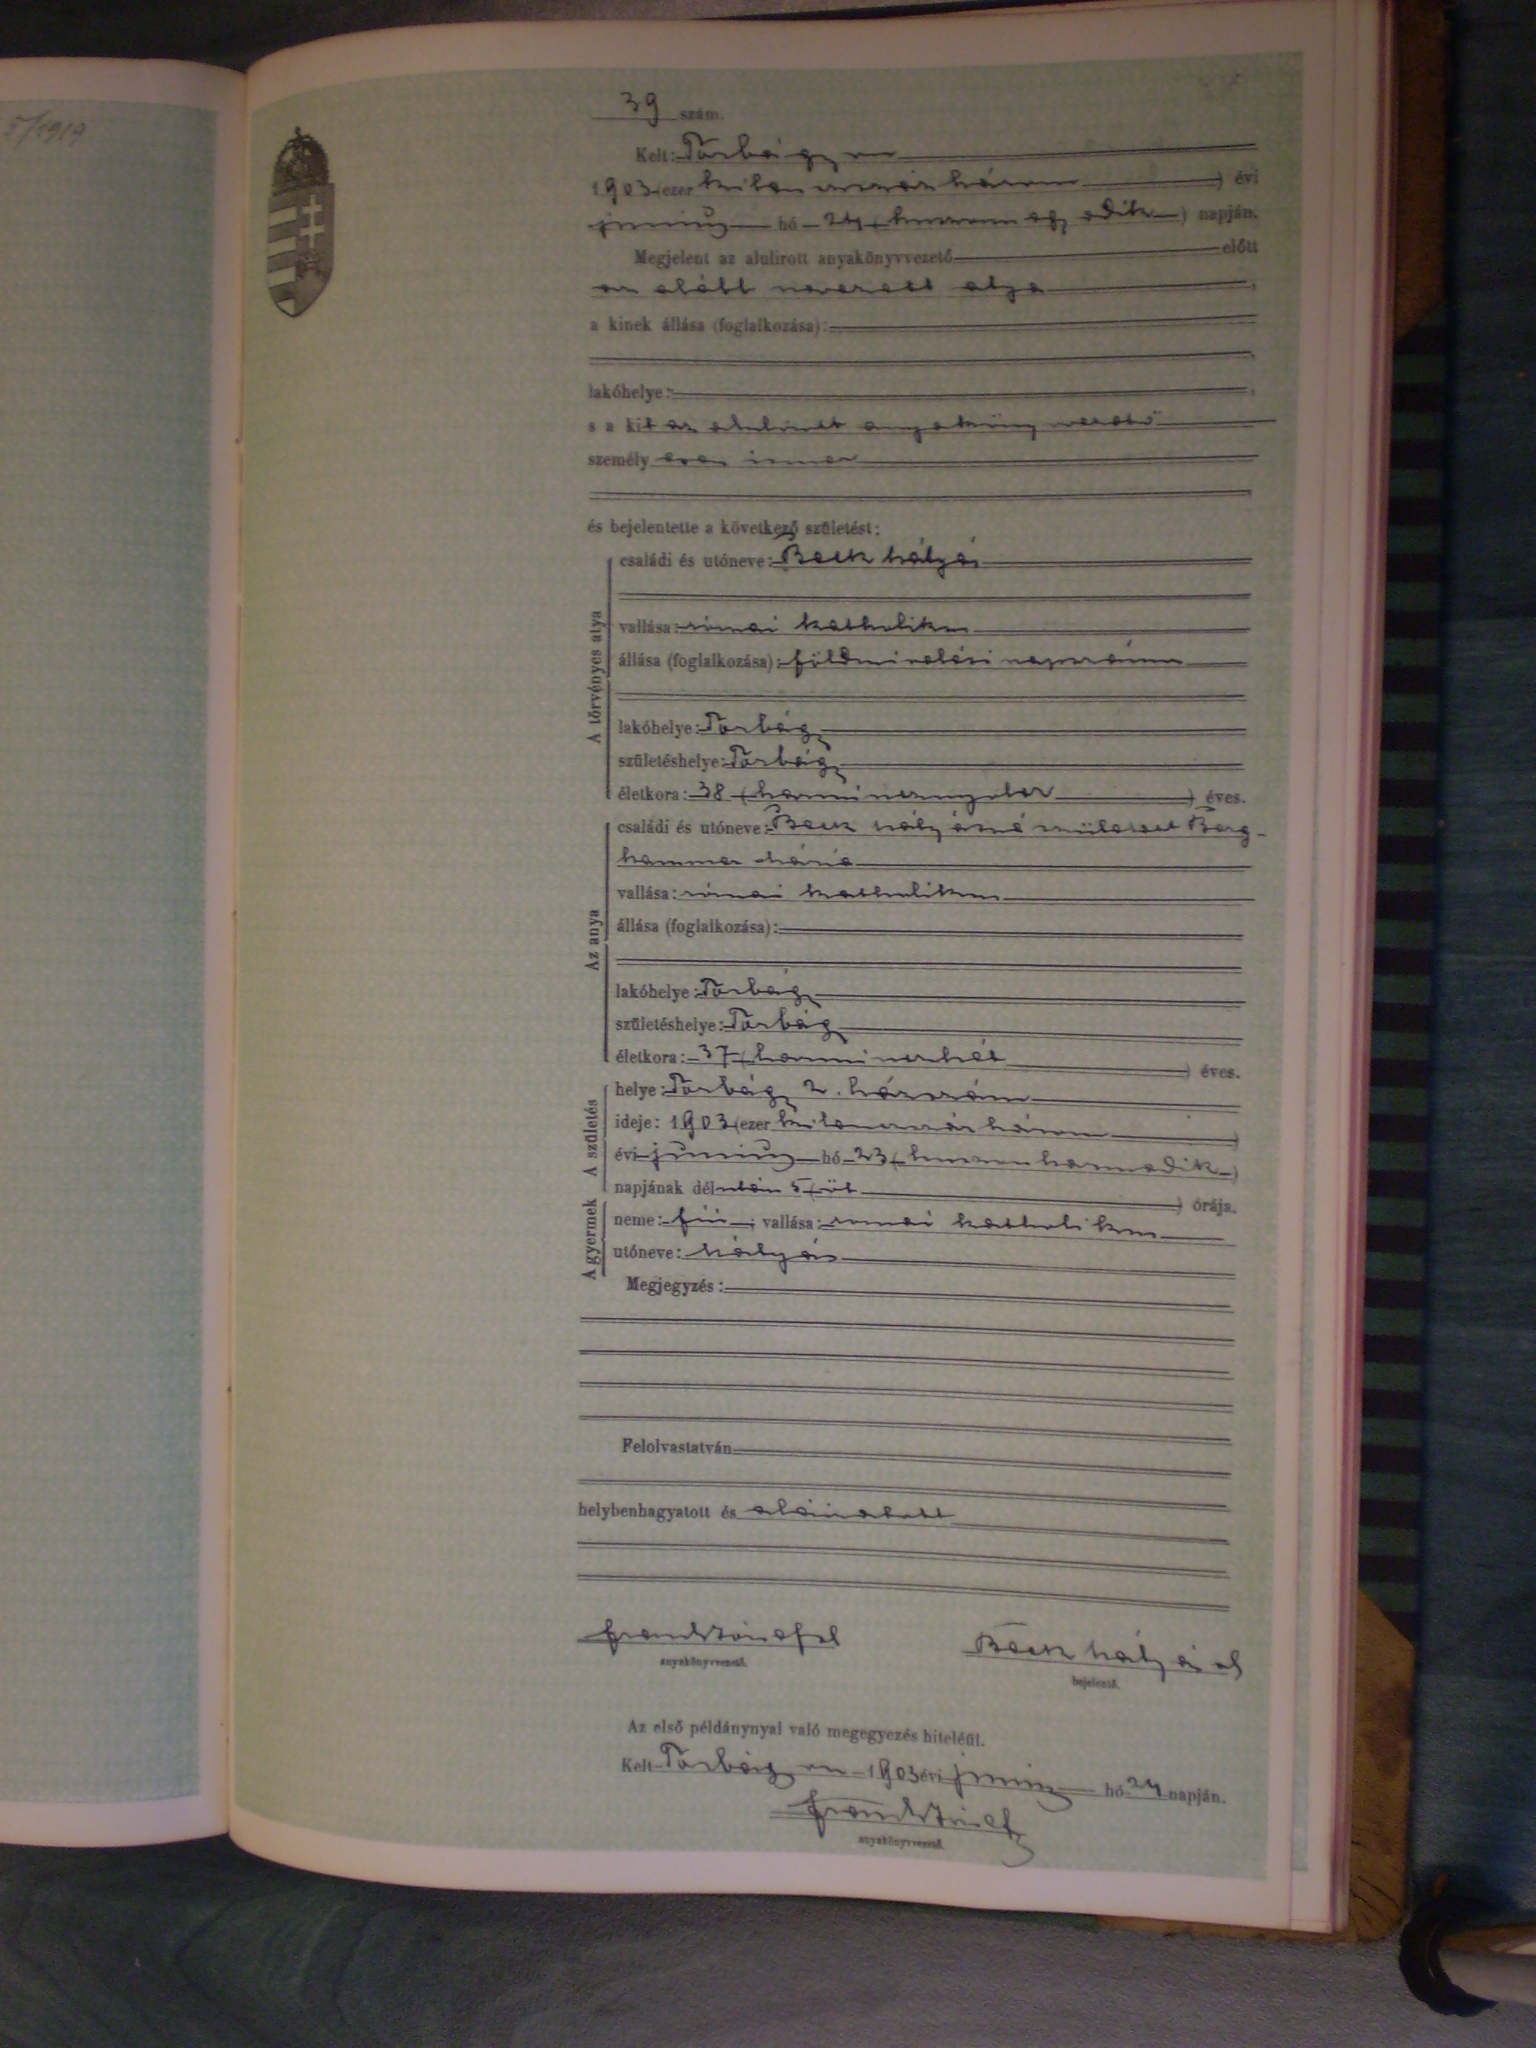 5/1919
39 szám.
Kelt: Törbágyon
1903 (ezer kilenczszázhárom) évi
junius hó 24 (huszonegyedik) napján.
Megjelent az alulirott anyakönyvvezető előtt
az alább nevezett atya
a kinek állása (foglalkozása):
lakóhelye:
s a kit az alulirott anyakönyvvezető
személyesen ismer
és bejelentette a következő születést:
A törvényes atya
családi és utóneve: Beck Mátyás
vallása: római katholikus
állása (foglalkozása): földmivelési napszámos
lakóhelye: Törbágy
születéshelye: Törbágy
életkora: 38 (harmincznyolcz) éves.
Az anya
családi és utóneve: Beck Mátyásné született Berg-
hammer Mária
vallása: római katholikus
állása (foglalkozása):
lakóhelye: Törbágy
születéshelye: Törbágy
életkora: 37 (harminczhét) éves.
A születés
helye: Törbágy 2. házszám
ideje: 1903 (ezer kilenczszázhárom)
évi junius hó 23 (huszonharmadik)
napjának délután 5 (öt) órája.
A gyermek
neme: fiú; vallása: római katholikus
utóneve: Mátyás
Megjegyzés:
Felolvastatván
helybenhagyatott és aláiratott
anyakönyvvezető.
Beck Mátyás
bejelentő.
Az első példánynyal való megegyezés hiteléül.
Kelt Törbágyon 1903 évi junius hó 24 napján.
anyakönyvvezető.